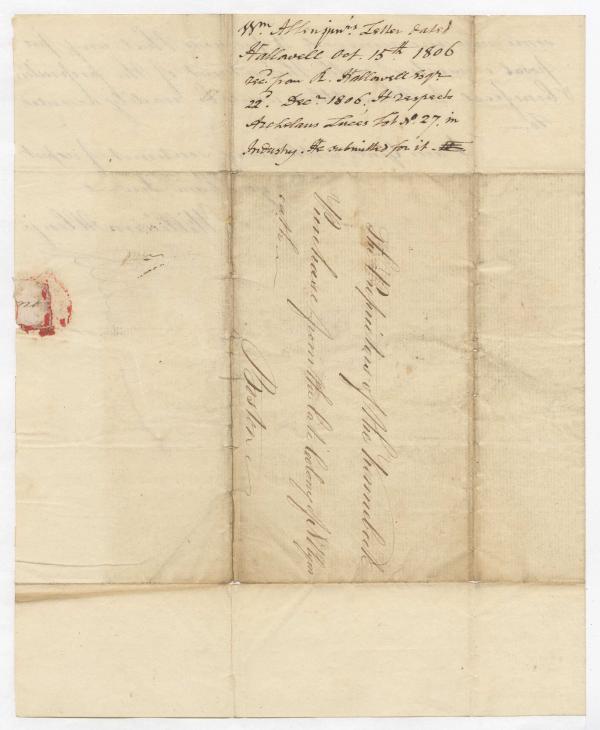 Wm Allin junrs. Letter dated
Hallowell Oct. 15th 1806
recd. from R. Hallowell Esqr
22d. Decr. 1806. It respects
Archelaus Luce's Lot No. 27. in
Industry. He submitted for it.
The Proprietors of the Kennebeck
Purchase from the late Colony of N. Plym
outh
Boston